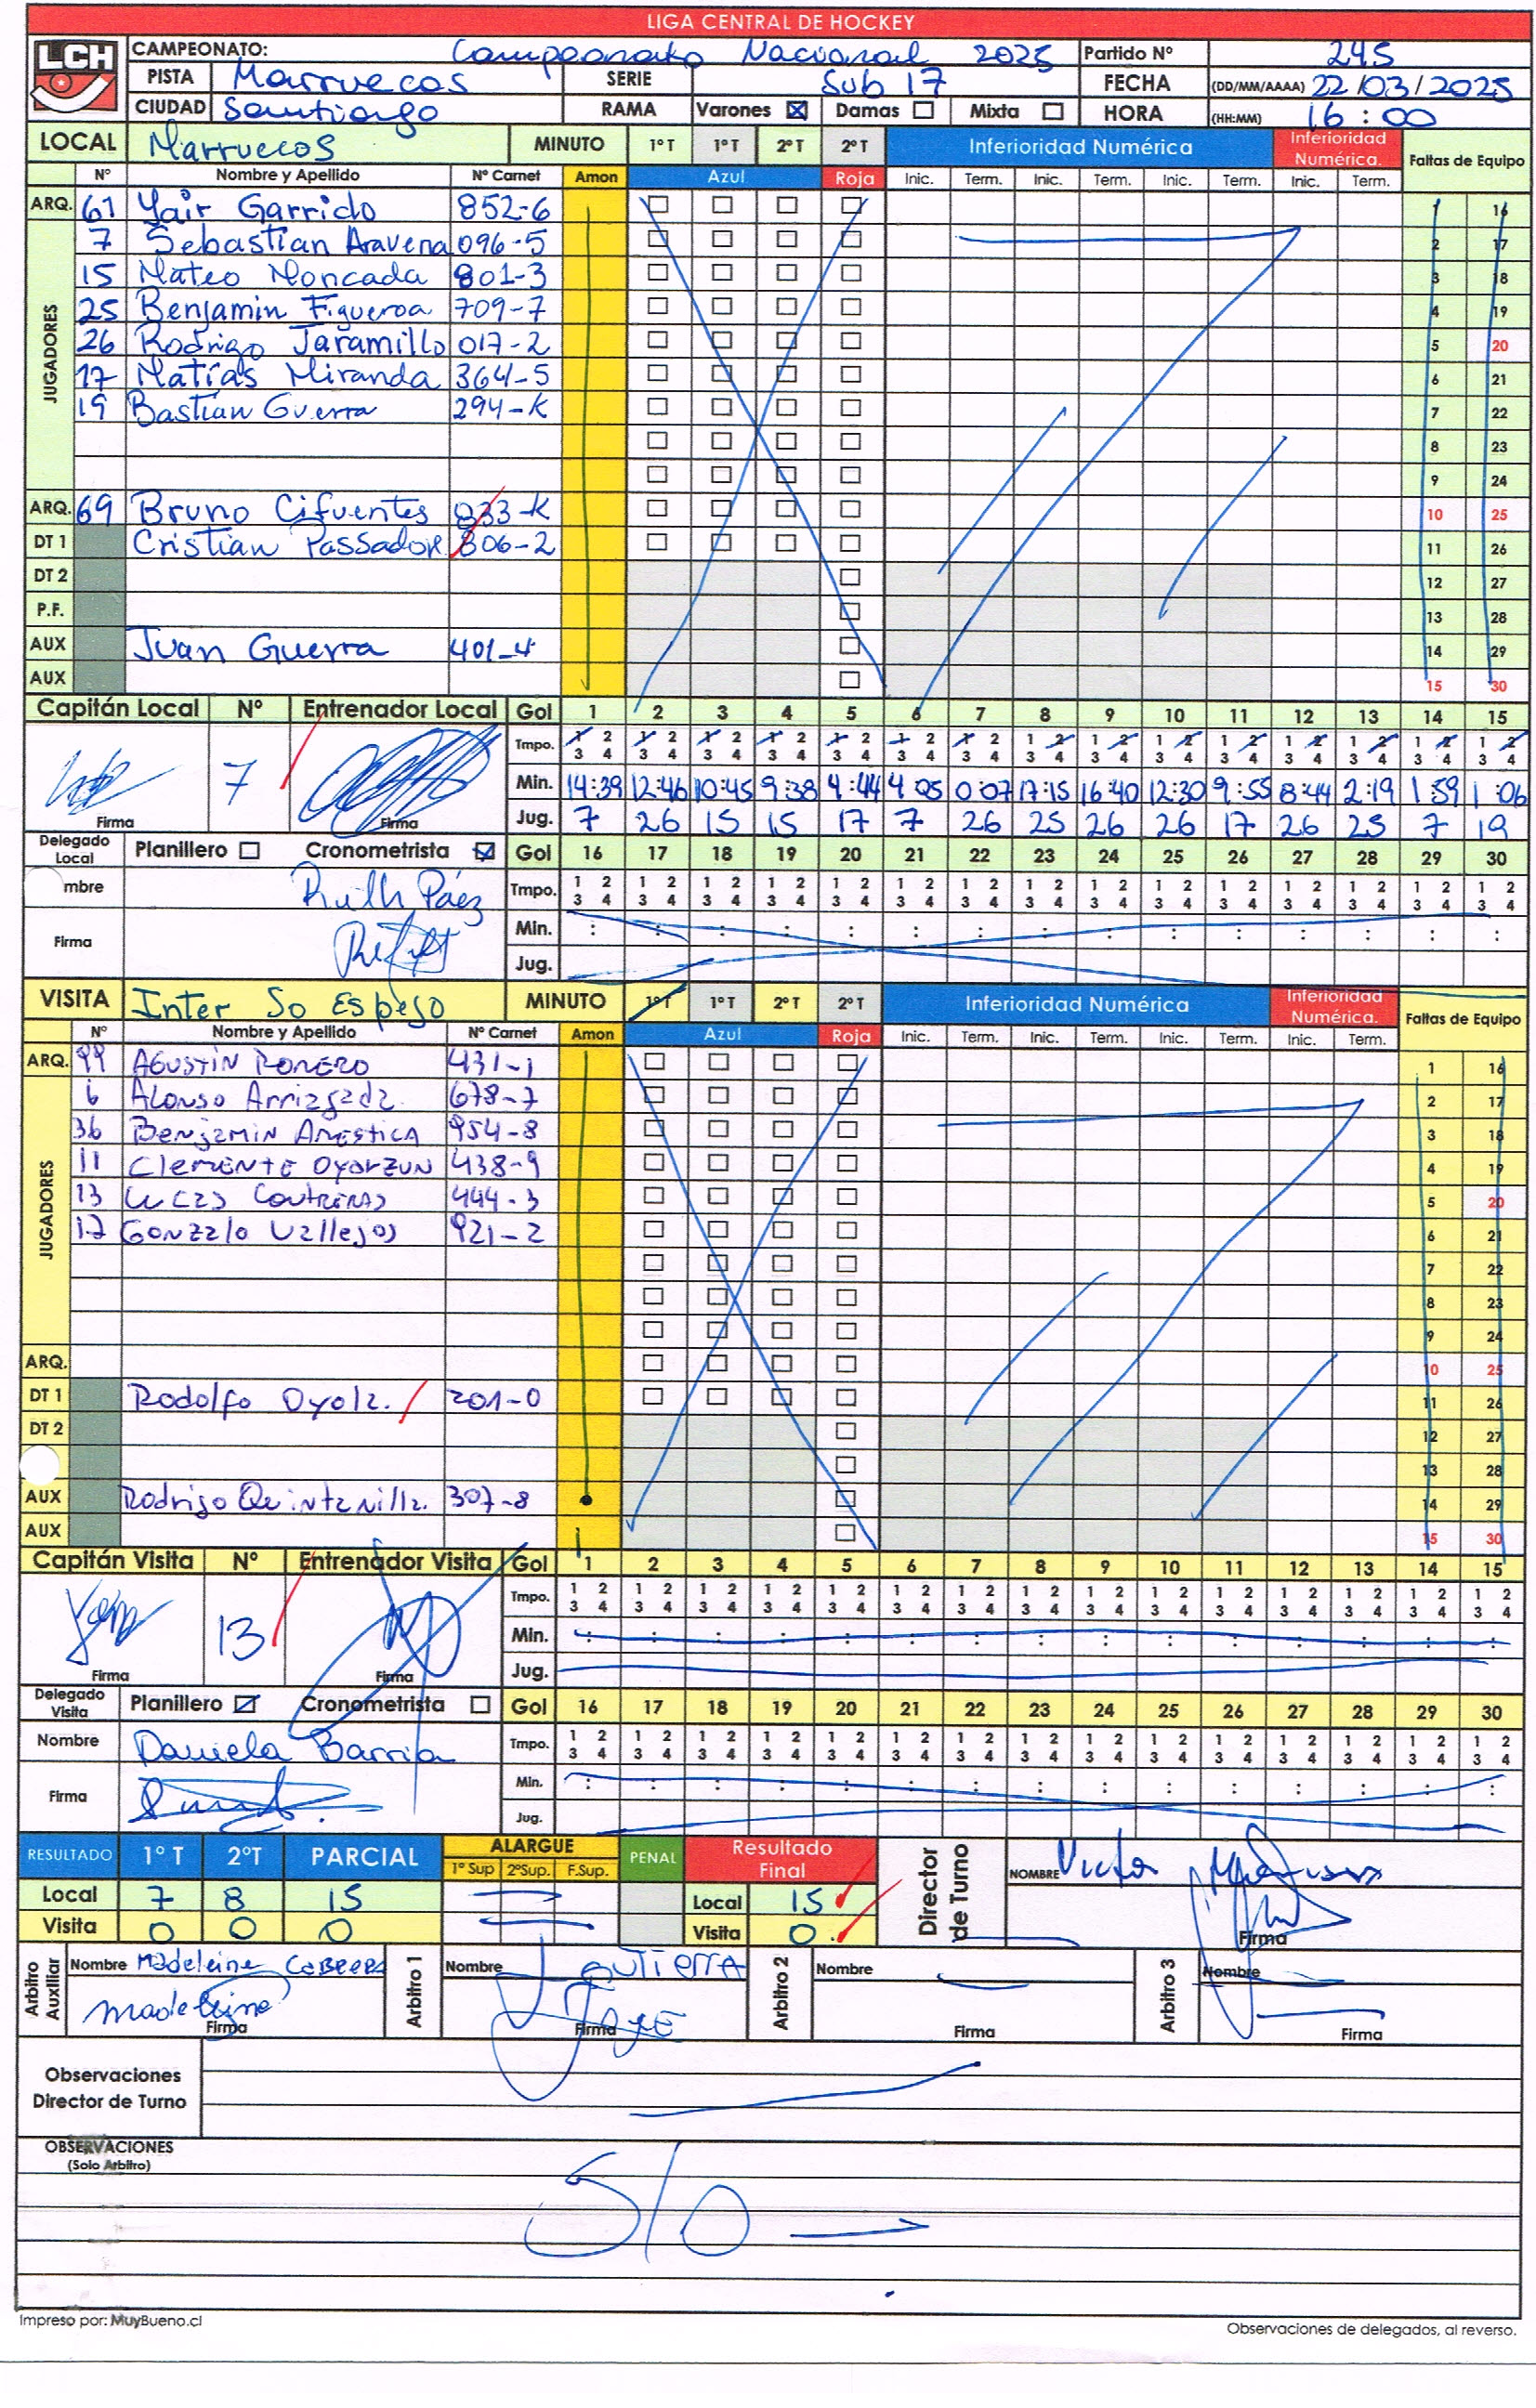 LIGA CENTRAL DE HOCKEY
LCH
CAMPEONATO: Campeonato Nacional 2025 Partido Nº 245
PISTA Marruecos SERIE Sub 17 FECHA (DD/MM/AAAA) 22/03/2025
CIUDAD Santiago RAMA Varones Damas Mixta HORA (HH:MM) 16:00
LOCAL Marruecos MINUTO 1º T 1º T 2º T 2º T Inferioridad Numérica Inferioridad Numérica. Faltas de Equipo
Nº Nombre y Apellido Nº Carnet Amon Azul Roja Inic. Term. Inic. Term. Inic. Term. Inic. Term.
ARQ. 61 Yair Garrido 852-6 1 16
JUGADORES
7 Sebastian Aravena 096-5 2 17
15 Mateo Moncada 801-3 3 18
25 Benjamin Figueroa 709-7 4 19
26 Rodrigo Jaramillo 017-2 5 20
17 Matías Miranda 364-5 6 21
19 Bastían Guerra 294-K 7 22
8 23
9 24
ARQ. 69 Bruno Cifuentes 833-K 10 25
DT 1 Cristian Passador 806-2 11 26
DT 2 12 27
P.F. 13 28
AUX Juan Guerra 401-4 14 29
AUX 15 30
Capitán Local Nº Entrenador Local Gol 1 2 3 4 5 6 7 8 9 10 11 12 13 14 15
Tmpo. 1 2 1 2 1 2 1 2 1 2 1 2 1 2 1 2 1 2 1 2 1 2 1 2 1 2 1 2 1 2
3 4 3 4 3 4 3 4 3 4 3 4 3 4 3 4 3 4 3 4 3 4 3 4 3 4 3 4 3 4
7 Min. 14:39 12:46 10:45 9:38 4:44 4:05 0:07 17:15 16:40 12:30 9:55 8:44 2:19 1:59 1:06
Firma Firma Jug. 7 26 15 15 17 7 26 25 26 26 17 26 25 7 19
Delegado Local Planillero Cronometrista Gol 16 17 18 19 20 21 22 23 24 25 26 27 28 29 30
mbre Ruth Páez Tmpo. 1 2 1 2 1 2 1 2 1 2 1 2 1 2 1 2 1 2 1 2 1 2 1 2 1 2 1 2 1 2
3 4 3 4 3 4 3 4 3 4 3 4 3 4 3 4 3 4 3 4 3 4 3 4 3 4 3 4 3 4
Firma Min. : : : : : : : : : : : : : : :
Jug.
VISITA Inter So Espejo MINUTO 1º T 1º T 2º T 2º T Inferioridad Numérica Inferioridad Numérica. Faltas de Equipo
Nº Nombre y Apellido Nº Carnet Amon Azul Roja Inic. Term. Inic. Term. Inic. Term. Inic. Term.
ARQ. 99 AGUSTÍN ROMERO 431-1 1 16
JUGADORES
6 Alonso Arriagada 678-7 2 17
36 Benjamin Amestica 954-8 3 18
11 Clemente Oyarzun 438-9 4 19
13 Lucas Contreras 444-3 5 20
17 Gonzalo Vallejos 921-2 6 21
7 22
8 23
9 24
ARQ. 10 25
DT 1 Rodolfo Oyola. 201-0 11 26
DT 2 12 27
13 28
AUX Rodrigo Quintanilla. 307-8 14 29
AUX 15 30
Capitán Visita Nº Entrenador Visita Gol 1 2 3 4 5 6 7 8 9 10 11 12 13 14 15
Tmpo. 1 2 1 2 1 2 1 2 1 2 1 2 1 2 1 2 1 2 1 2 1 2 1 2 1 2 1 2 1 2
3 4 3 4 3 4 3 4 3 4 3 4 3 4 3 4 3 4 3 4 3 4 3 4 3 4 3 4 3 4
13 Min. : : : : : : : : : : : : : : :
Firma Firma Jug.
Delegado Visita Planillero Cronometrista Gol 16 17 18 19 20 21 22 23 24 25 26 27 28 29 30
Nombre Daniela Barria Tmpo. 1 2 1 2 1 2 1 2 1 2 1 2 1 2 1 2 1 2 1 2 1 2 1 2 1 2 1 2 1 2
3 4 3 4 3 4 3 4 3 4 3 4 3 4 3 4 3 4 3 4 3 4 3 4 3 4 3 4 3 4
Firma Min. : : : : : : : : : : : : : : :
Jug.
RESULTADO 1º T 2ºT PARCIAL ALARGUE 1º Sup 2ºSup. F.Sup. PENAL Resultado Final Director de Turno NOMBRE Victor
Local 7 8 15 Local 15
Visita 0 0 0 Visita 0 Firma
Arbitro Auxiliar Nombre Madeleine CABRERA Arbitro 1 Nombre Arbitro 2 Nombre Arbitro 3 Nombre
Madeleine Firma Firma Firma Firma
Observaciones
Director de Turno
OBSERVACIONES
(Solo Arbitro)
S/O
Impreso por: MuyBueno.cl
Observaciones de delegados, al reverso.